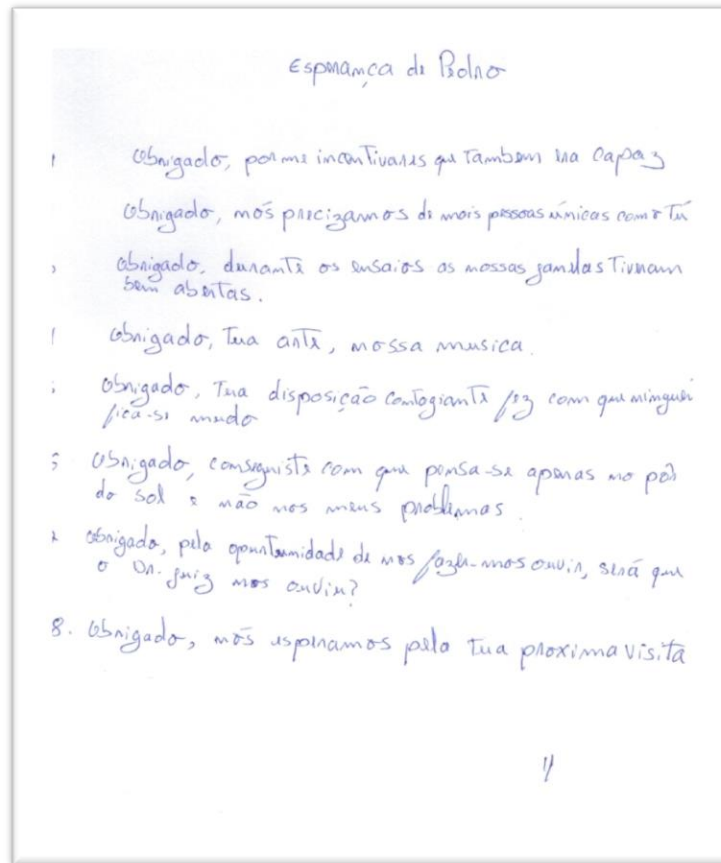 Esperança de Pedro
Obrigado, por me incentivares que tambem era capaz
Obrigado, nós precizamos de mais pessoas únicas como Tú
Obrigado, durante os ensaios as nossas janelas Tiveram
bem abertas.
Obrigado, Tua arte, nossa musica.
Obrigado, Tua disposição contagiante fez com que ninguei
fica-se mudo
Obrigado, conseguiste com que pensa-se apenas no pôr
do sol e não nos meus problemas.
Obrigado, pela oportunidade de nos fazer-mos ouvir, será que
o Dr. juiz nos ouviu?
8. Obrigado, nós esperamos pela Tua proxima visita